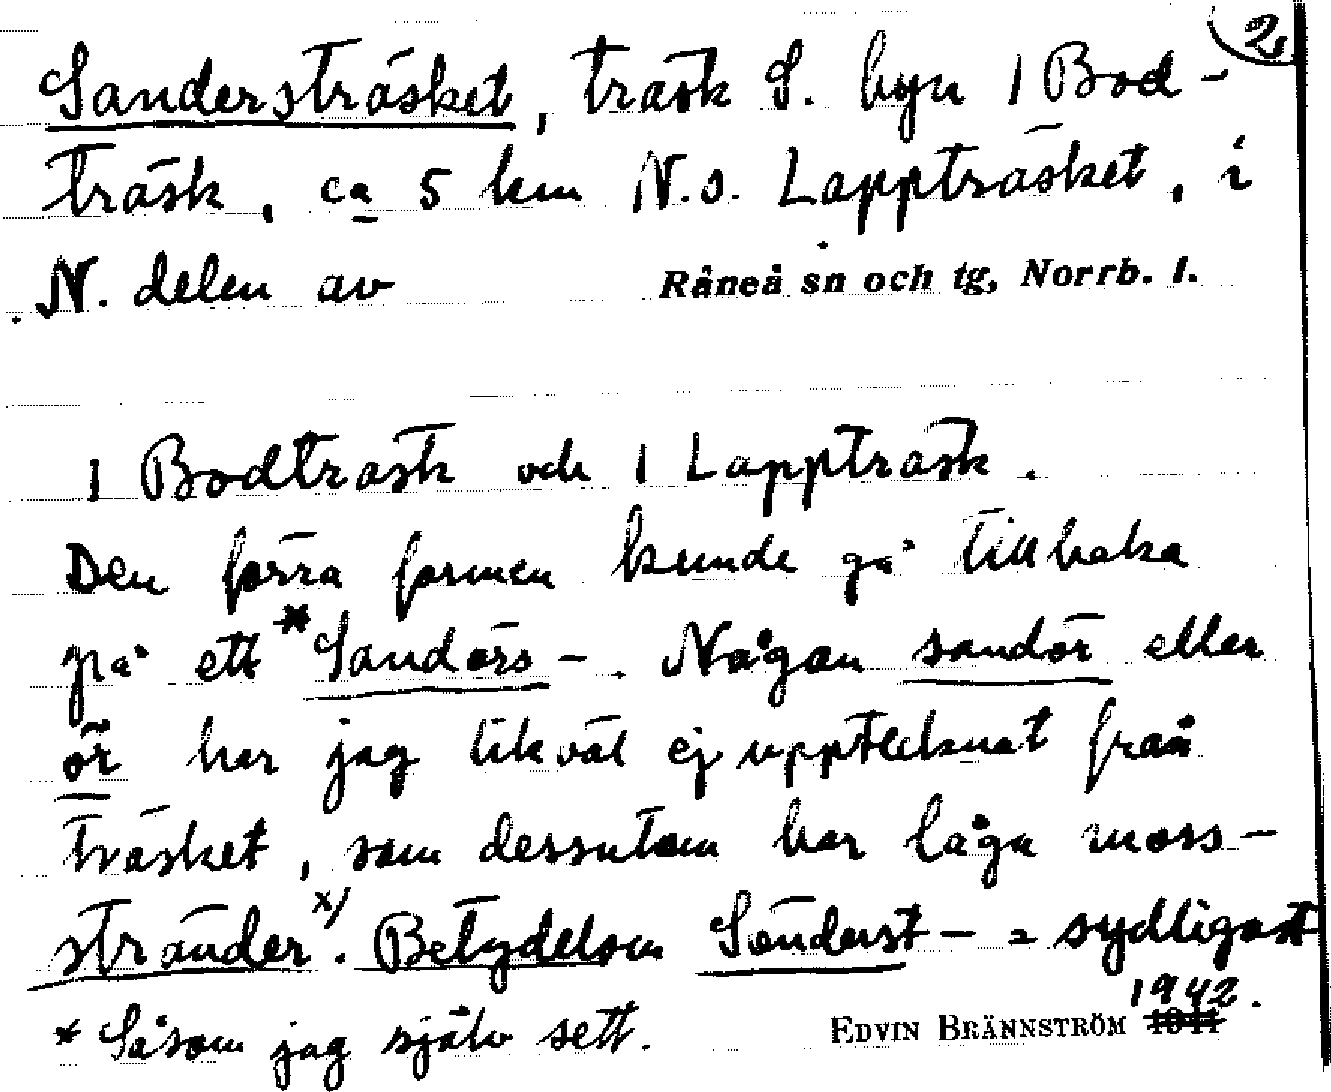 2
Sandersträsket, träsk S. byn 1 Bod-
träsk, ca 5 km N.o. Lappträsket, i
N. delen av Råneå sn och tg, Norrb. l.
1 Bodträsk och 1 Lappträsk.
Den förra formen kunde gå tillbaka
på ett *Sandörs-. Någon sandör eller
ör har jag likväl ej upptecknat från
träsket, som dessutom har låga moss-
stränder x). Betydelsen Sönderst- = sydligast
* Såsom jag själv sett. EDVIN BRÄNNSTRÖM 1941 1942.